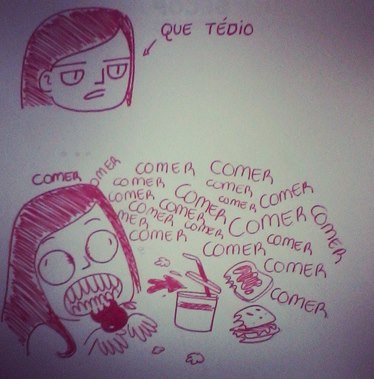 QUE TÉDIO
COMER COMER COMER COMER
COMER COMER COMER
COMER COMER COMER
COMER COMER COMER COMER
MER COMER COMER
COMER COMER
COMER
COMER